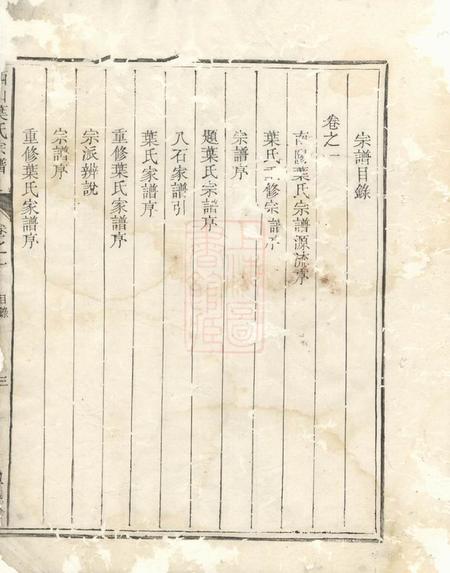 宗譜目錄
卷之一
南陽葉氏宗譜源流序
葉氏重修宗譜序
宗譜序
題葉氏宗譜序
八石家譜引
葉氏家譜序
重修葉氏家譜序
宗派辨說
宗譜序
重修葉氏家譜序
山葉氏宗譜
卷之一
目錄
三
上海圖書館藏